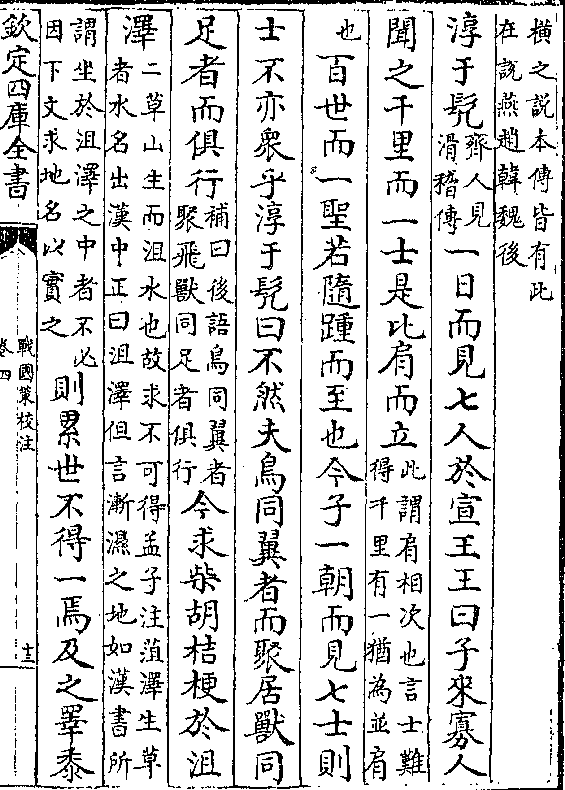 橫之説本傳皆有此
在説燕趙韓魏後
淳于髠齊人見滑稽傳一日而見七人於宣王王曰子來寡人
聞之千里而一士是比肩而立此謂肩相次也言士難得千里有一猶為並肩
也百世而一聖若隨踵而至也今子一朝而見七士則
士不亦衆乎淳于髠曰不然夫鳥同翼者而聚居獸同
足者而俱行補曰後語鳥同翼者聚飛獸同足者俱行今求柴胡桔梗於沮
澤二草山生而沮水也故求不可得孟子注菹澤生草者水名出漢中正曰沮澤但言漸濕之地如漢書所
謂坐於沮澤之中者不必因下文求地名以實之則累世不得一焉及之睪黍
欽定四庫全書
戰國策校注
卷四
十三